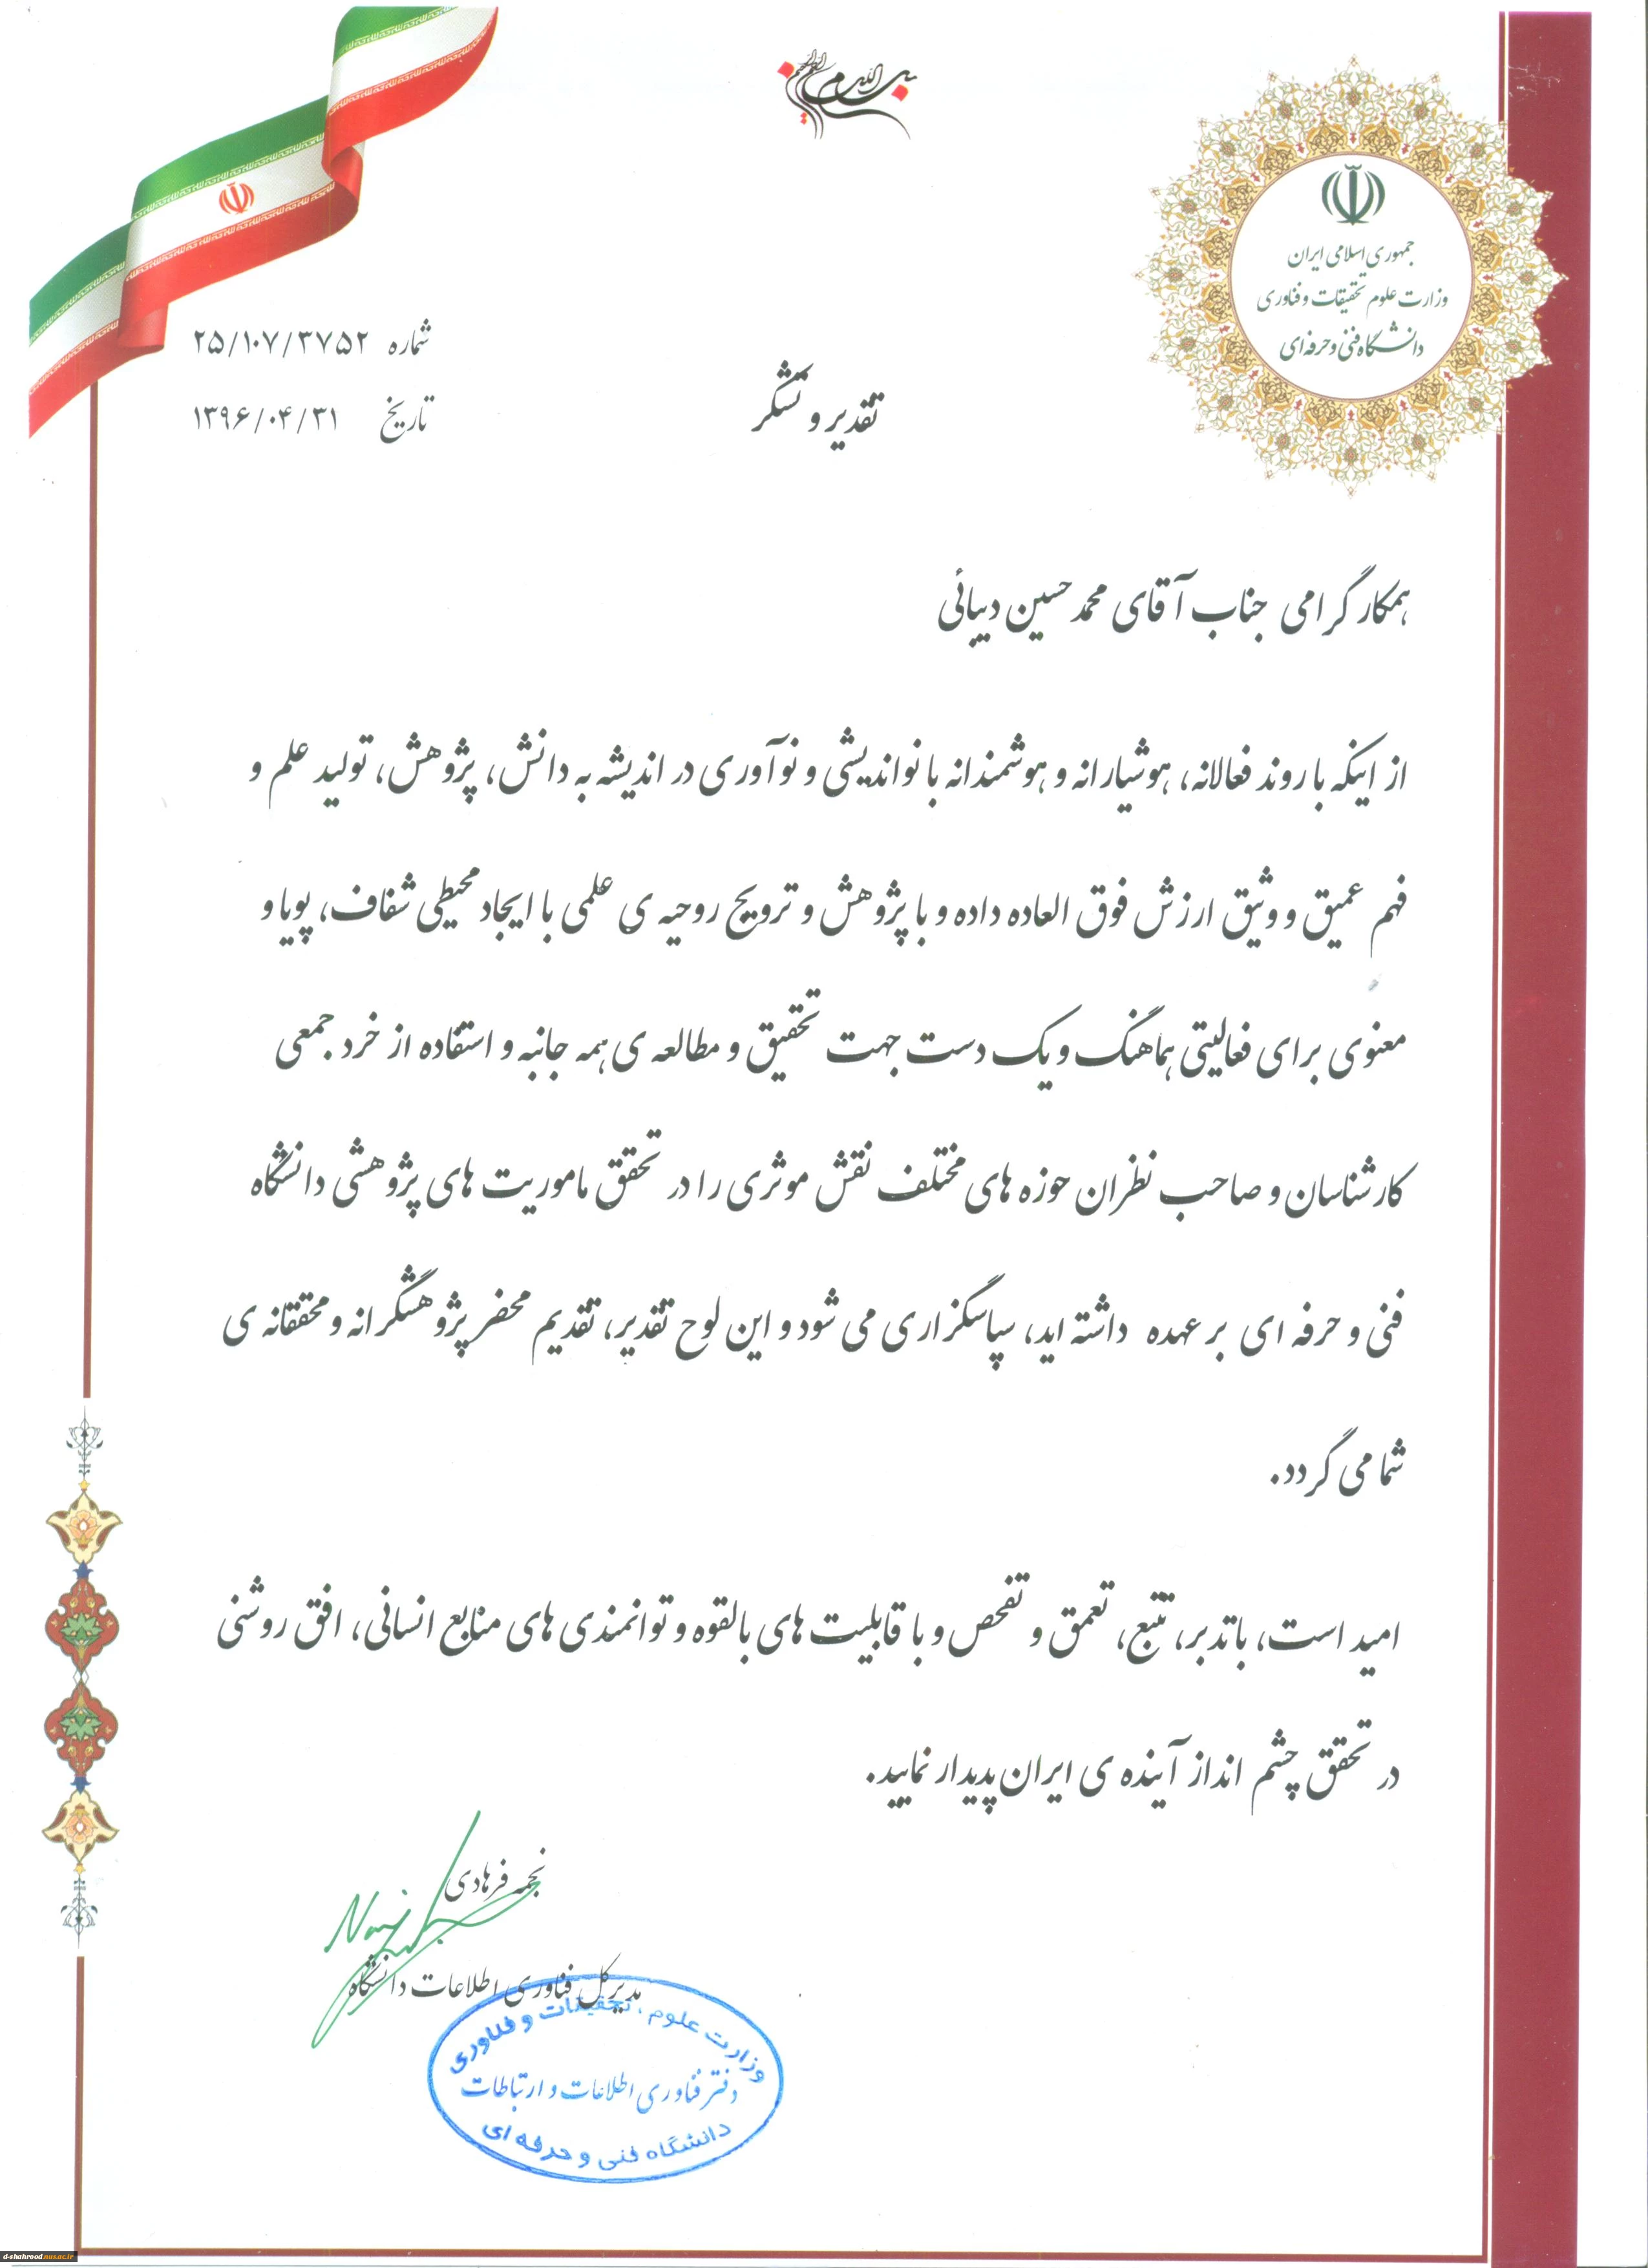 بسم الله الرحمن الرحیم
جمهوری اسلامی ایران
وزارت علوم تحقیقات و فناوری
دانشگاه فنی و حرفه‌ای
شماره ۲۵/۱۰۷/۳۷۵۲
تاریخ ۱۳۹۶/۰۴/۳۱
تقدیر و تشکر
همکار گرامی جناب آقای محمد حسین دیبائی
از اینکه با روند فعالانه، هوشیارانه و هوشمندانه با نواندیشی و نوآوری در اندیشه به دانش، پژوهش، تولید علم و
فهم عمیق و وثیق ارزش فوق العاده داده و با پژوهش و ترویج روحیه ی علمی با ایجاد محیطی شفاف، پویا و
معنوی برای فعالیتی هماهنگ و یک دست جهت تحقیق و مطالعه ی همه جانبه و استفاده از خرد جمعی
کارشناسان و صاحب نظران حوزه های مختلف نقش موثری را در تحقق ماموریت های پژوهشی دانشگاه
فنی و حرفه ای بر عهده داشته اید، سپاسگزاری می شود و این لوح تقدیر، تقدیم محضر پژوهشگرانه و محققانه ی
شما می گردد.
امید است، با تدبر، تتبع، تعمق و تفحص و با قابلیت های بالقوه و توانمندی های منابع انسانی، افق روشنی
در تحقق چشم انداز آینده ی ایران پدیدار نمایید.
نجمه فرهادی
مدیرکل فناوری اطلاعات دانشگاه
وزارت علوم، تحقیقات و فناوری
دفتر فناوری اطلاعات و ارتباطات
دانشگاه فنی و حرفه ای
d-shahrood.nus.ac.ir